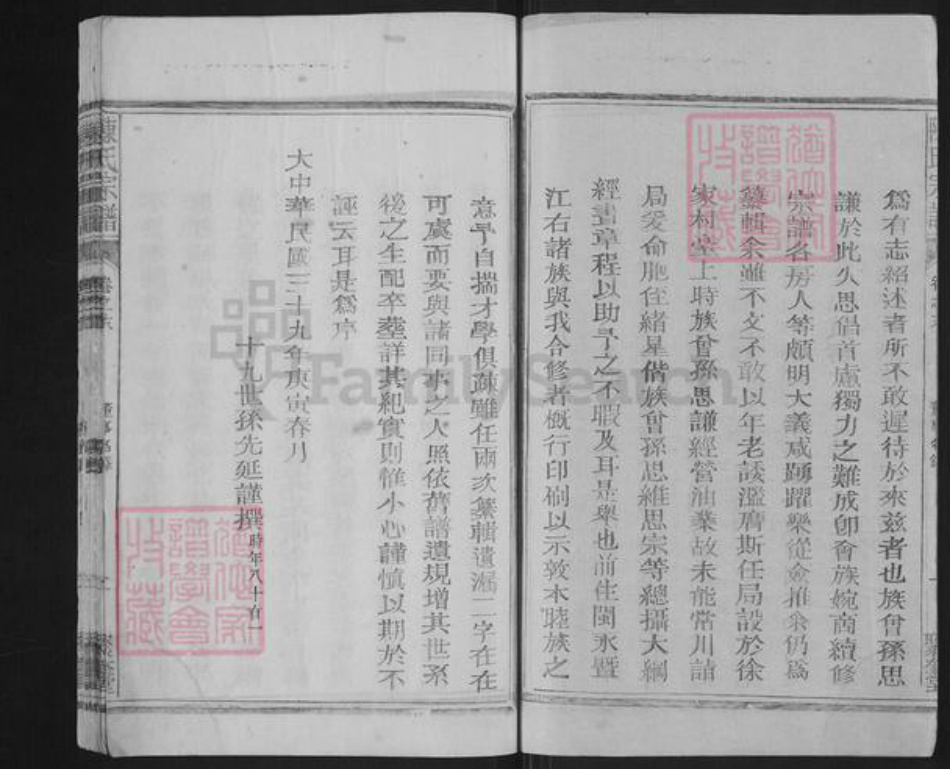 為有志紹述者所不敢遲待於來茲者也族曾孫思
謙於此久思倡首慮獨力之難成卽會族婉商續修
宗譜各房人等頗明大義咸踴躍樂從僉推余仍為
纂輯余雖不文不敢以年老諉濫膺斯任局設於徐
家村堂上時族曾孫思謙經營油業故未能常川請
局爰命胞侄緒星偕族曾孫思維思宗等總攝大綱
經書章程以助予之不暇及耳是舉也前往閩永暨
江右諸族與我合修者概行印刷以示敦本睦族之
意予自揣才學俱疎雖任兩次纂輯遺漏二字在在
可虞而要與諸同事之人照依舊譜遺規增其世系
後之生配卒塟詳其紀實則惟小心謹慎以期於不
誣云耳是為序
大中華民國三十九年庚寅春月
十九世孫先延謹撰時年八十有一
陳氏宗譜
FamilySearch